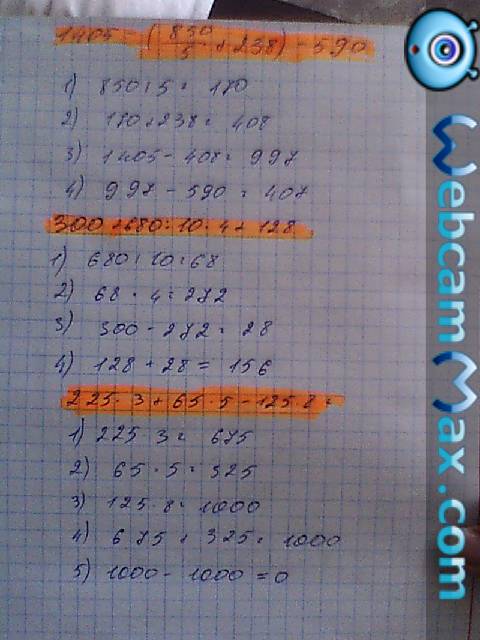 1405 - (850/5 + 238) - 590
1) 850 : 5 = 170
2) 170 + 238 = 408
3) 1405 - 408 = 997
4) 997 - 590 = 407
300 - 680 : 10 · 4 + 128
1) 680 : 10 = 68
2) 68 · 4 = 272
3) 300 - 272 = 28
4) 128 + 28 = 156
225 · 3 + 65 · 5 - 125 · 8 =
1) 225 · 3 = 675
2) 65 · 5 = 325
3) 125 · 8 = 1000
4) 675 + 325 = 1000
5) 1000 - 1000 = 0
WebcamMax.com